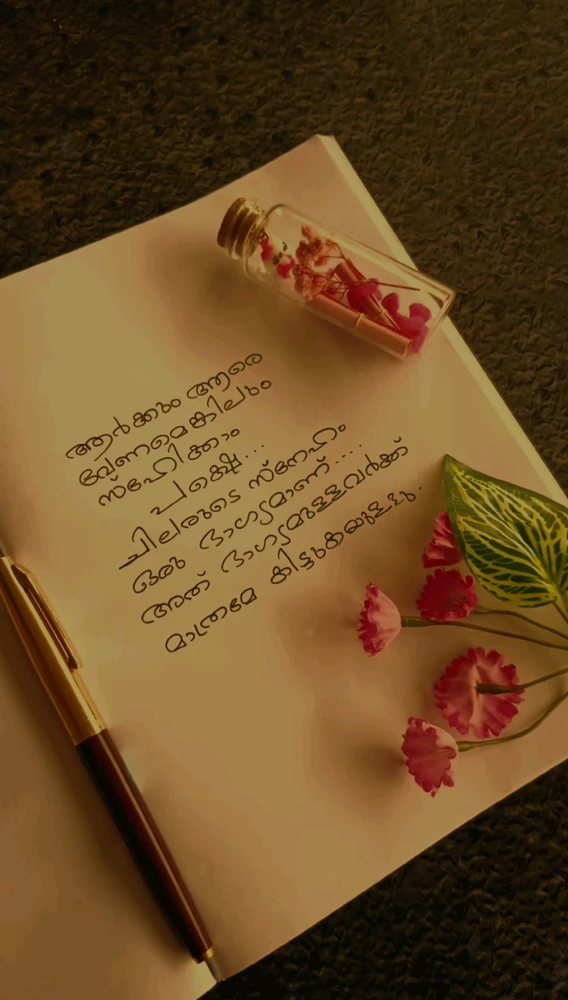 ആർക്കും ആരെ
വേണമെങ്കിലും
സ്നേഹിക്കാം
പക്ഷെ...
ചിലരുടെ സ്നേഹം
ഒരു ഭാഗ്യമാണ്....
അത് ഭാഗ്യമുള്ളവർക്ക്
മാത്രമേ കിട്ടുകയുള്ളു.